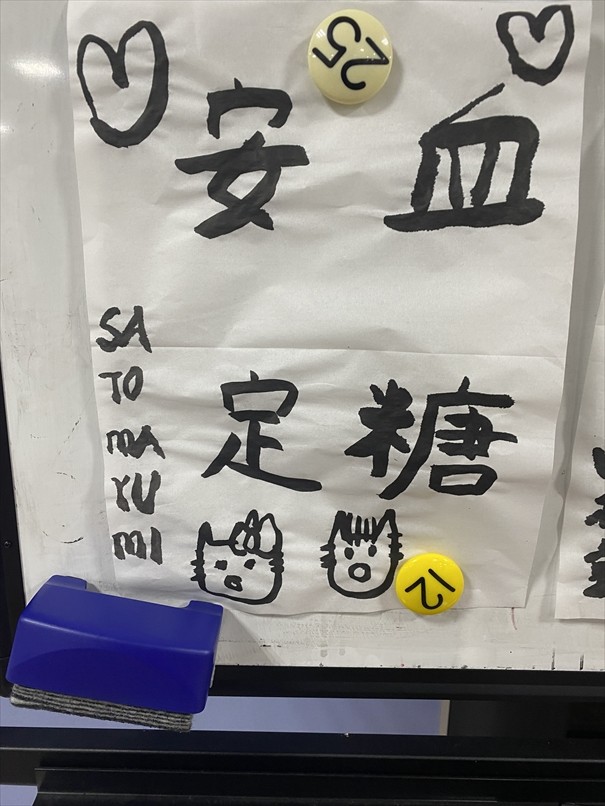 血糖
安定
SA
TO
MA
YU
MI
25
12